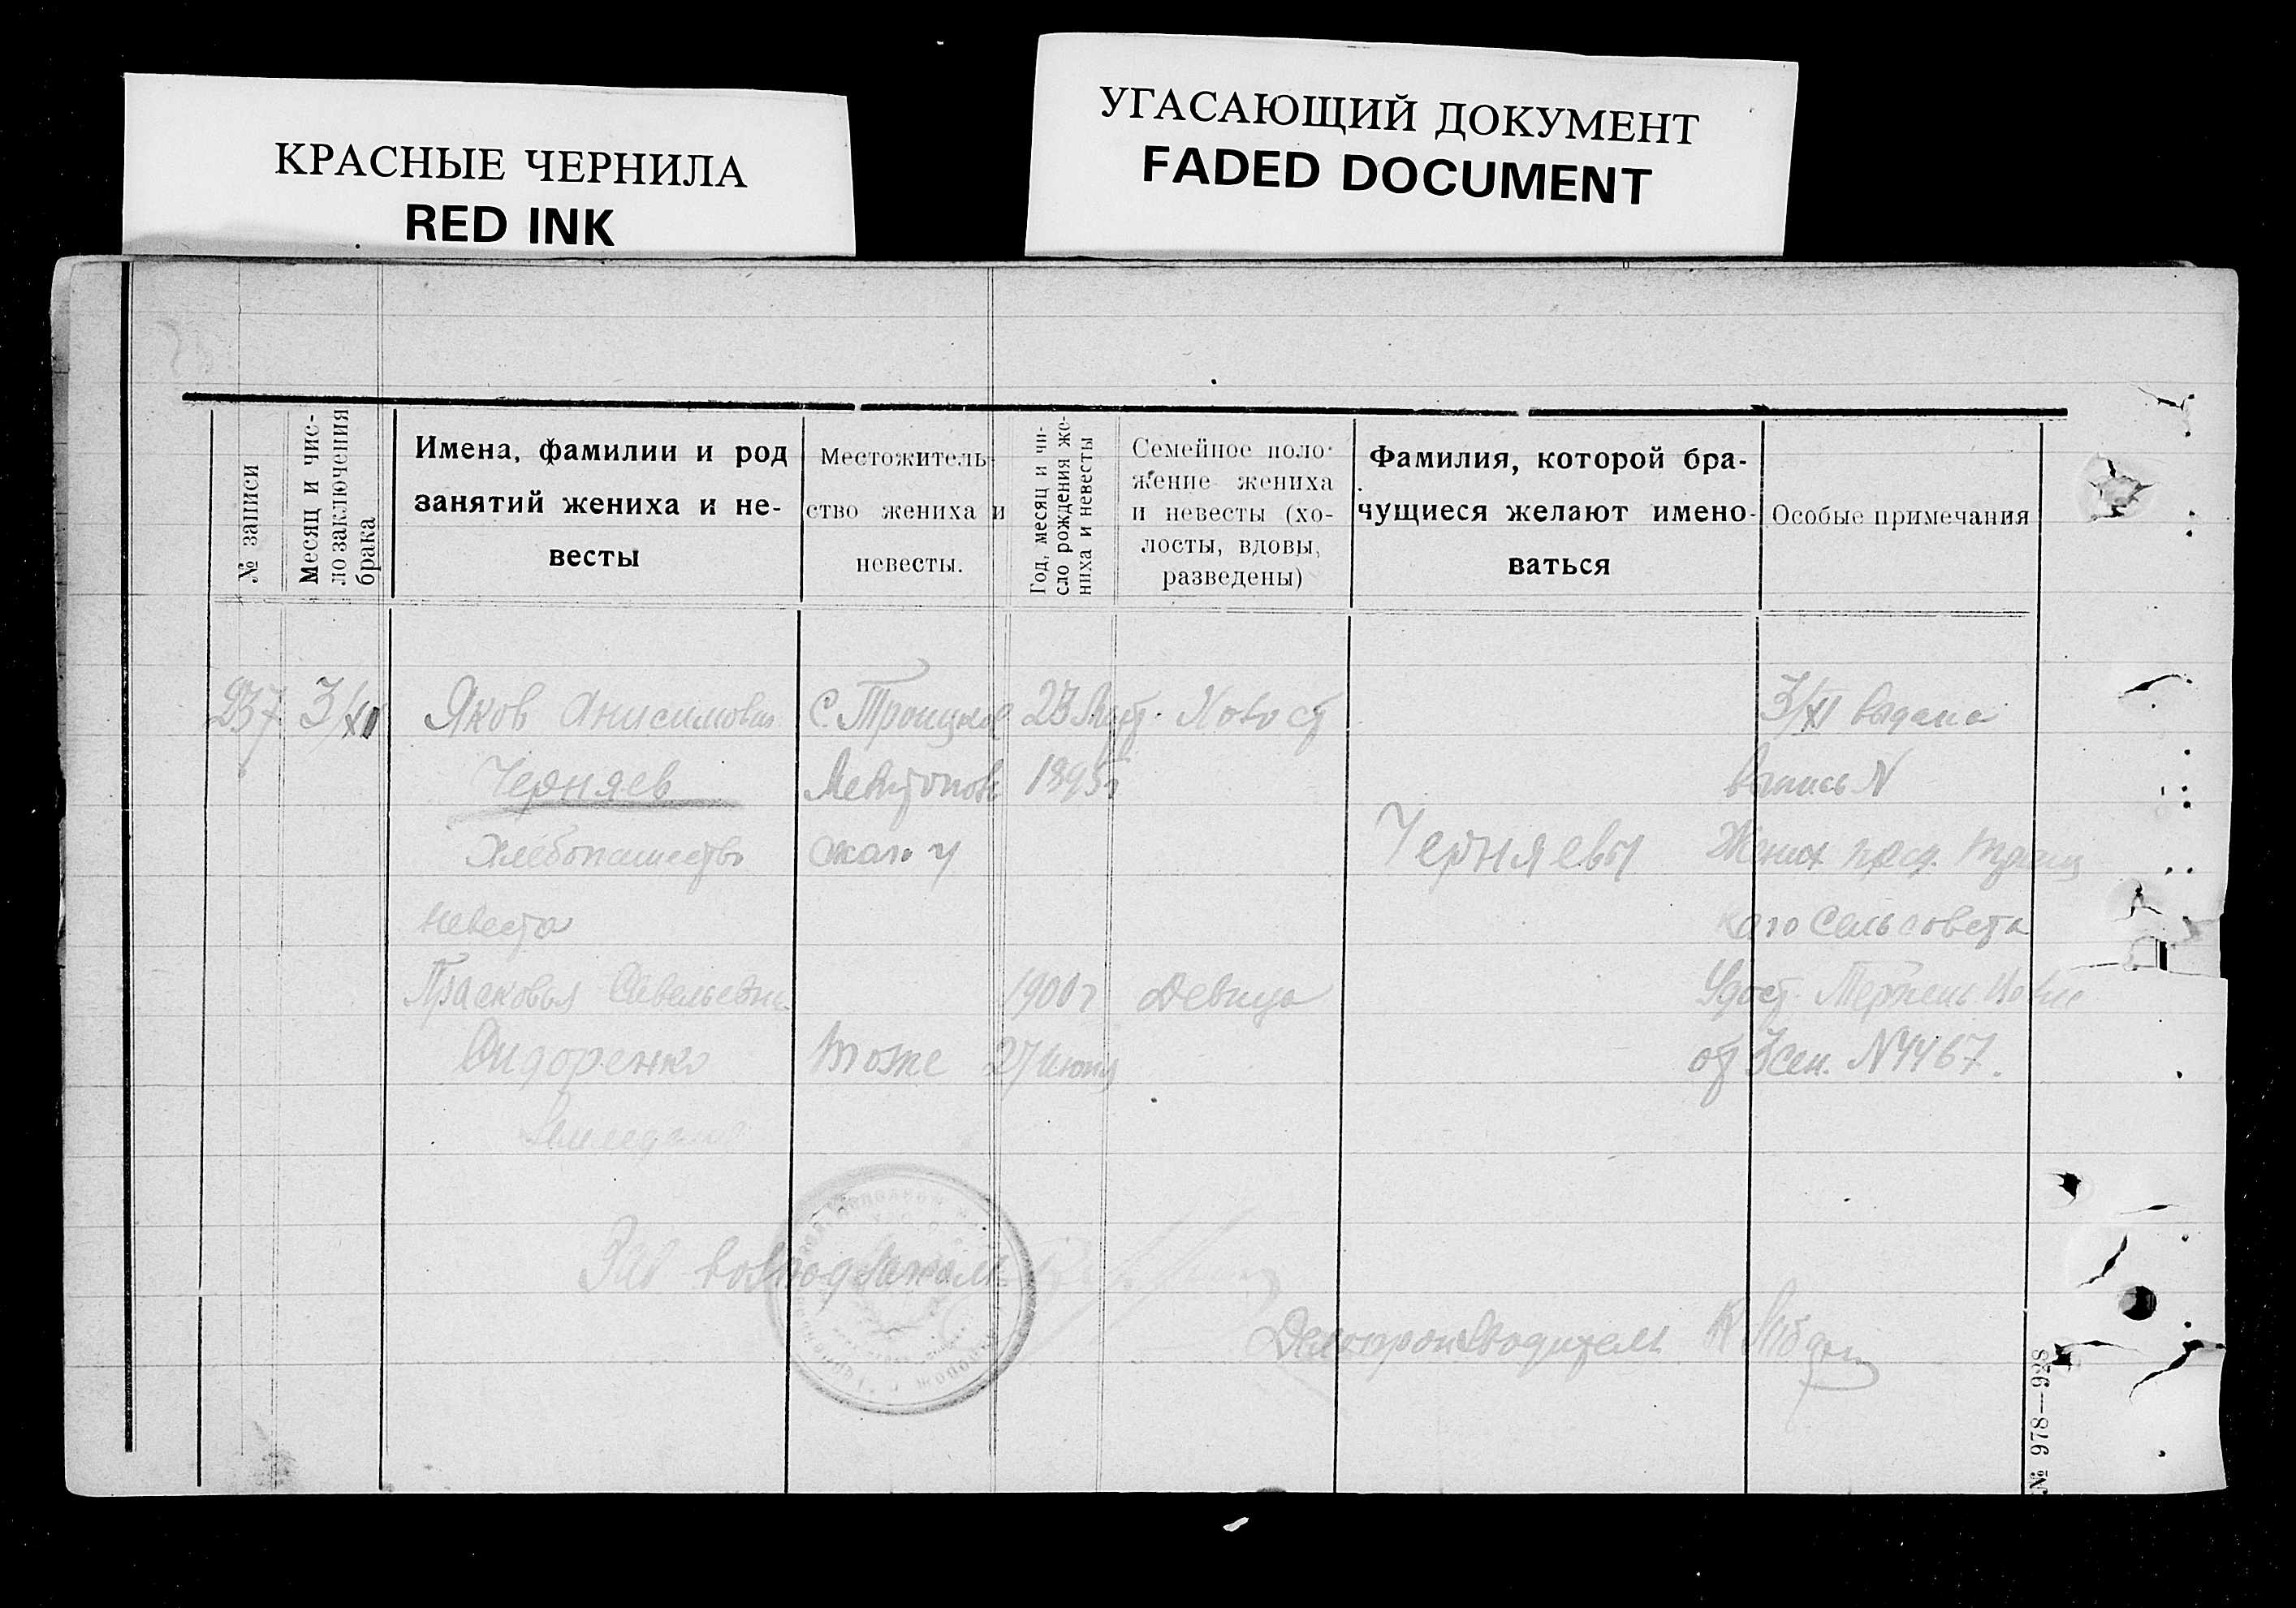 КРАСНЫЕ ЧЕРНИЛА
RED INK
УГАСАЮЩИЙ ДОКУМЕНТ
FADED DOCUMENT
№ записи
Месяц и чис-
ло заключения
брака
Имена, фамилии и род
занятий жениха и не-
весты
Местожитель-
ство жениха и
невесты.
Год, месяц и чи-
сло рождения же-
ниха и невесты
Семейное поло-
жение жениха
и невесты (хо-
лосты, вдовы,
разведены)
Фамилия, которой бра-
чущиеся желают имено-
ваться
Особые примечания
237
3/XI
Яков Анисимович
Черняев
Хлебопашество
невеста
Прасковья Савельевна
Сидоренко
С. Троицкое
Мелитопол
ского у
тоже
23
1895г
1900 г
27 июня
Холост
Девица
Черняевы
3/XI выдана
выпись N
Жених пред. Троиц
кого Сельсовета
Удост.
от N 4467.
Зав
Делопроизводитель К
№ 978—928